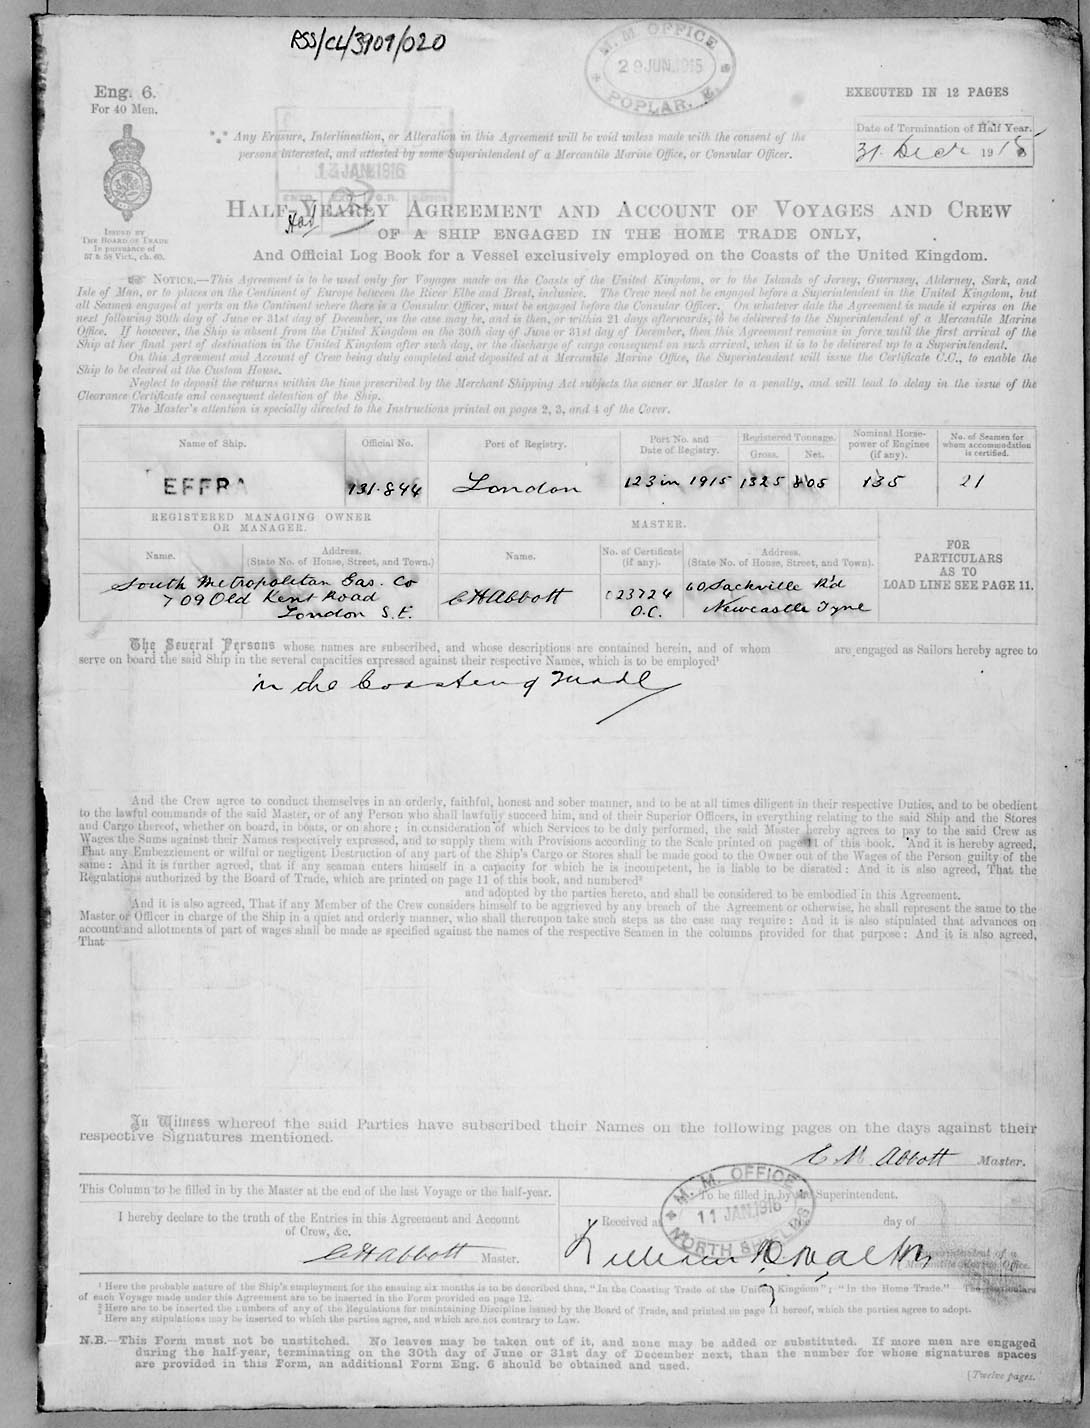 RSS/CL/3909/020
M. M. OFFICE
29 JUN. 1915
POPLAR. E.
Eng. 6.
For 40 Men.
EXECUTED IN 12 PAGES
Date of Termination of Half Year.
31 Decr 1915
Any Erasure, Interlineation, or Alteration in this Agreement will be void unless made with the consent of the
persons interested, and attested by some Superintendent of a Mercantile Marine Office, or Consular Officer.
13 JAN 1916
ISSUED BY
THE BOARD OF TRADE
In pursuance of
57 & 58 Vict., ch. 60.
HALF-YEARLY AGREEMENT AND ACCOUNT OF VOYAGES AND CREW
OF A SHIP ENGAGED IN THE HOME TRADE ONLY,
And Official Log Book for a Vessel exclusively employed on the Coasts of the United Kingdom.
NOTICE.—This Agreement is to be used only for Voyages made on the Coasts of the United Kingdom, or to the Islands of Jersey, Guernsey, Alderney, Sark, and
Isle of Man, or to places on the Continent of Europe between the River Elbe and Brest, inclusive. The Crew need not be engaged before a Superintendent in the United Kingdom, but
all Seamen engaged at ports on the Continent where there is a Consular Officer, must be engaged before the Consular Officer. On whatever date the Agreement is made it expires on the
next following 30th day of June or 31st day of December, as the case may be, and is then, or within 21 days afterwards, to be delivered to the Superintendent of a Mercantile Marine
Office. If however, the Ship is absent from the United Kingdom on the 30th day of June or 31st day of December, then this Agreement remains in force until the first arrival of the
Ship at her final port of destination in the United Kingdom after such day, or the discharge of cargo consequent on such arrival, when it is to be delivered up to a Superintendent.
On this Agreement and Account of Crew being duly completed and deposited at a Mercantile Marine Office, the Superintendent will issue the Certificate C.C., to enable the
Ship to be cleared at the Custom House.
Neglect to deposit the returns within the time prescribed by the Merchant Shipping Act subjects the owner or Master to a penalty, and will lead to delay in the issue of the
Clearance Certificate and consequent detention of the Ship.
The Master's attention is specially directed to the Instructions printed on pages 2, 3, and 4 of the Cover.
Name of Ship. Official No. Port of Registry. Port No. and Date of Registry. Registered Tonnage. Gross. Net. Nominal Horse-power of Engines (if any). No. of Seamen for whom accommodation is certified.
EFFRA 131.844 London 123 in 1915 1325 805 135 21
REGISTERED MANAGING OWNER
OR MANAGER.
MASTER.
Name. Address. (State No. of House, Street, and Town.) Name. No. of Certificate (if any). Address. (State No. of House, Street, and Town).
FOR
PARTICULARS
AS TO
LOAD LINE SEE PAGE 11.
South Metropolitan Gas. Co
709 Old Kent Road
London S.E.
C H Abbott
023724
O.C.
60 Sackville Rd
Newcastle Tyne
The Several Persons whose names are subscribed, and whose descriptions are contained herein, and of whom are engaged as Sailors hereby agree to
serve on board the said Ship in the several capacities expressed against their respective Names, which is to be employed¹
in the Coasting Trade
And the Crew agree to conduct themselves in an orderly, faithful, honest and sober manner, and to be at all times diligent in their respective Duties, and to be obedient
to the lawful commands of the said Master, or of any Person who shall lawfully succeed him, and of their Superior Officers, in everything relating to the said Ship and the Stores
and Cargo thereof, whether on board, in boats, or on shore; in consideration of which Services to be duly performed, the said Master hereby agrees to pay to the said Crew as
Wages the Sums against their Names respectively expressed, and to supply them with Provisions according to the Scale printed on page 11 of this book. And it is hereby agreed,
That any Embezzlement or wilful or negligent Destruction of any part of the Ship's Cargo or Stores shall be made good to the Owner out of the Wages of the Person guilty of the
same: And it is further agreed, that if any seaman enters himself in a capacity for which he is incompetent, he is liable to be disrated: And it is also agreed, That the
Regulations authorized by the Board of Trade, which are printed on page 11 of this book, and numbered²
and adopted by the parties hereto, and shall be considered to be embodied in this Agreement.
And it is also agreed, That if any Member of the Crew considers himself to be aggrieved by any breach of the Agreement or otherwise, he shall represent the same to the
Master or Officer in charge of the Ship in a quiet and orderly manner, who shall thereupon take such steps as the case may require: And it is also stipulated that advances on
account and allotments of part of wages shall be made as specified against the names of the respective Seamen in the columns provided for that purpose: And it is also agreed,
That
In Witness whereof the said Parties have subscribed their Names on the following pages on the days against their
respective Signatures mentioned.
C H Abbott Master.
This Column to be filled in by the Master at the end of the last Voyage or the half-year.
To be filled in by the Superintendent.
I hereby declare to the truth of the Entries in this Agreement and Account
of Crew, &c.
C H Abbott Master.
M. M. OFFICE
11 JAN. 1916
NORTH SHIELDS
Received at day of
Superintendent of a
Mercantile Marine Office.
¹ Here the probable nature of the Ship's employment for the ensuing six months is to be described thus, "In the Coasting Trade of the United Kingdom"; "In the Home Trade." The particulars
of each Voyage made under this Agreement are to be inserted in the Form provided on page 12.
² Here are to be inserted the numbers of any of the Regulations for maintaining Discipline issued by the Board of Trade, and printed on page 11 hereof, which the parties agree to adopt.
Here any stipulations may be inserted to which the parties agree, and which are not contrary to Law.
N.B.—This Form must not be unstitched. No leaves may be taken out of it, and none may be added or substituted. If more men are engaged
during the half-year, terminating on the 30th day of June or 31st day of December next, than the number for whose signatures spaces
are provided in this Form, an additional Form Eng. 6 should be obtained and used.
[Twelve pages.